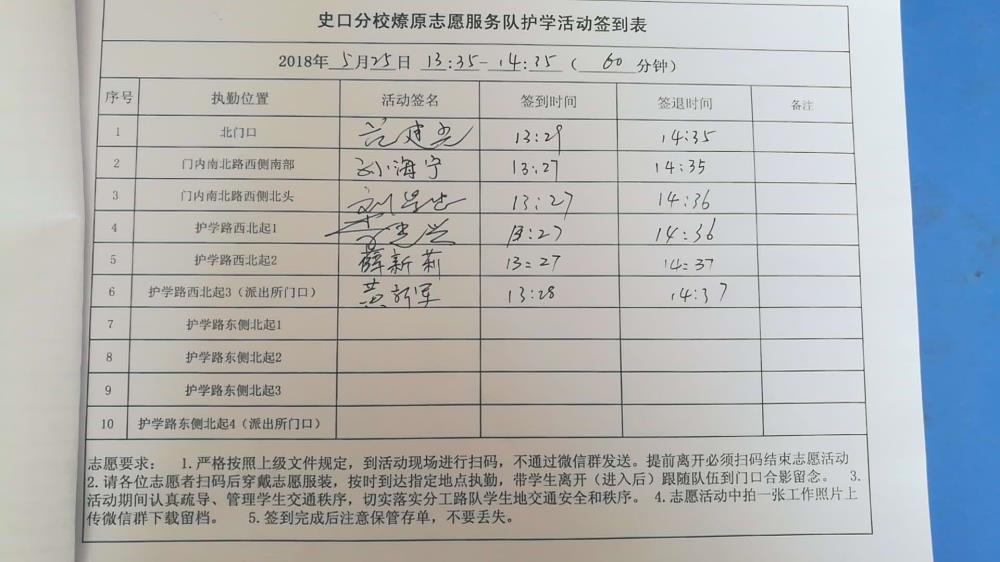 史口分校燎原志愿服务队护学活动签到表
2018年 5月25日 13:35-14:35 ( 60 分钟)
序号 执勤位置 活动签名 签到时间 签退时间 备注
1 北门口 13:29 14:35
2 门内南北路西侧南部 孙海宁 13:27 14:35
3 门内南北路西侧北头 13:27 14:36
4 护学路西北起1 13:27 14:36
5 护学路西北起2 薛新莉 13:27 14:37
6 护学路西北起3（派出所门口） 黄新军 13:28 14:37
7 护学路东侧北起1
8 护学路东侧北起2
9 护学路东侧北起3
10 护学路东侧北起4（派出所门口）
志愿要求： 1.严格按照上级文件规定，到活动现场进行扫码，不通过微信群发送。提前离开必须扫码结束志愿活动
2.请各位志愿者扫码后穿戴志愿服装，按时到达指定地点执勤，带学生离开（进入后）跟随队伍到门口合影留念。 3.
活动期间认真疏导、管理学生交通秩序，切实落实分工路队学生地交通安全和秩序。 4.志愿活动中拍一张工作照片上
传微信群下载留档。 5.签到完成后注意保管存单，不要丢失。